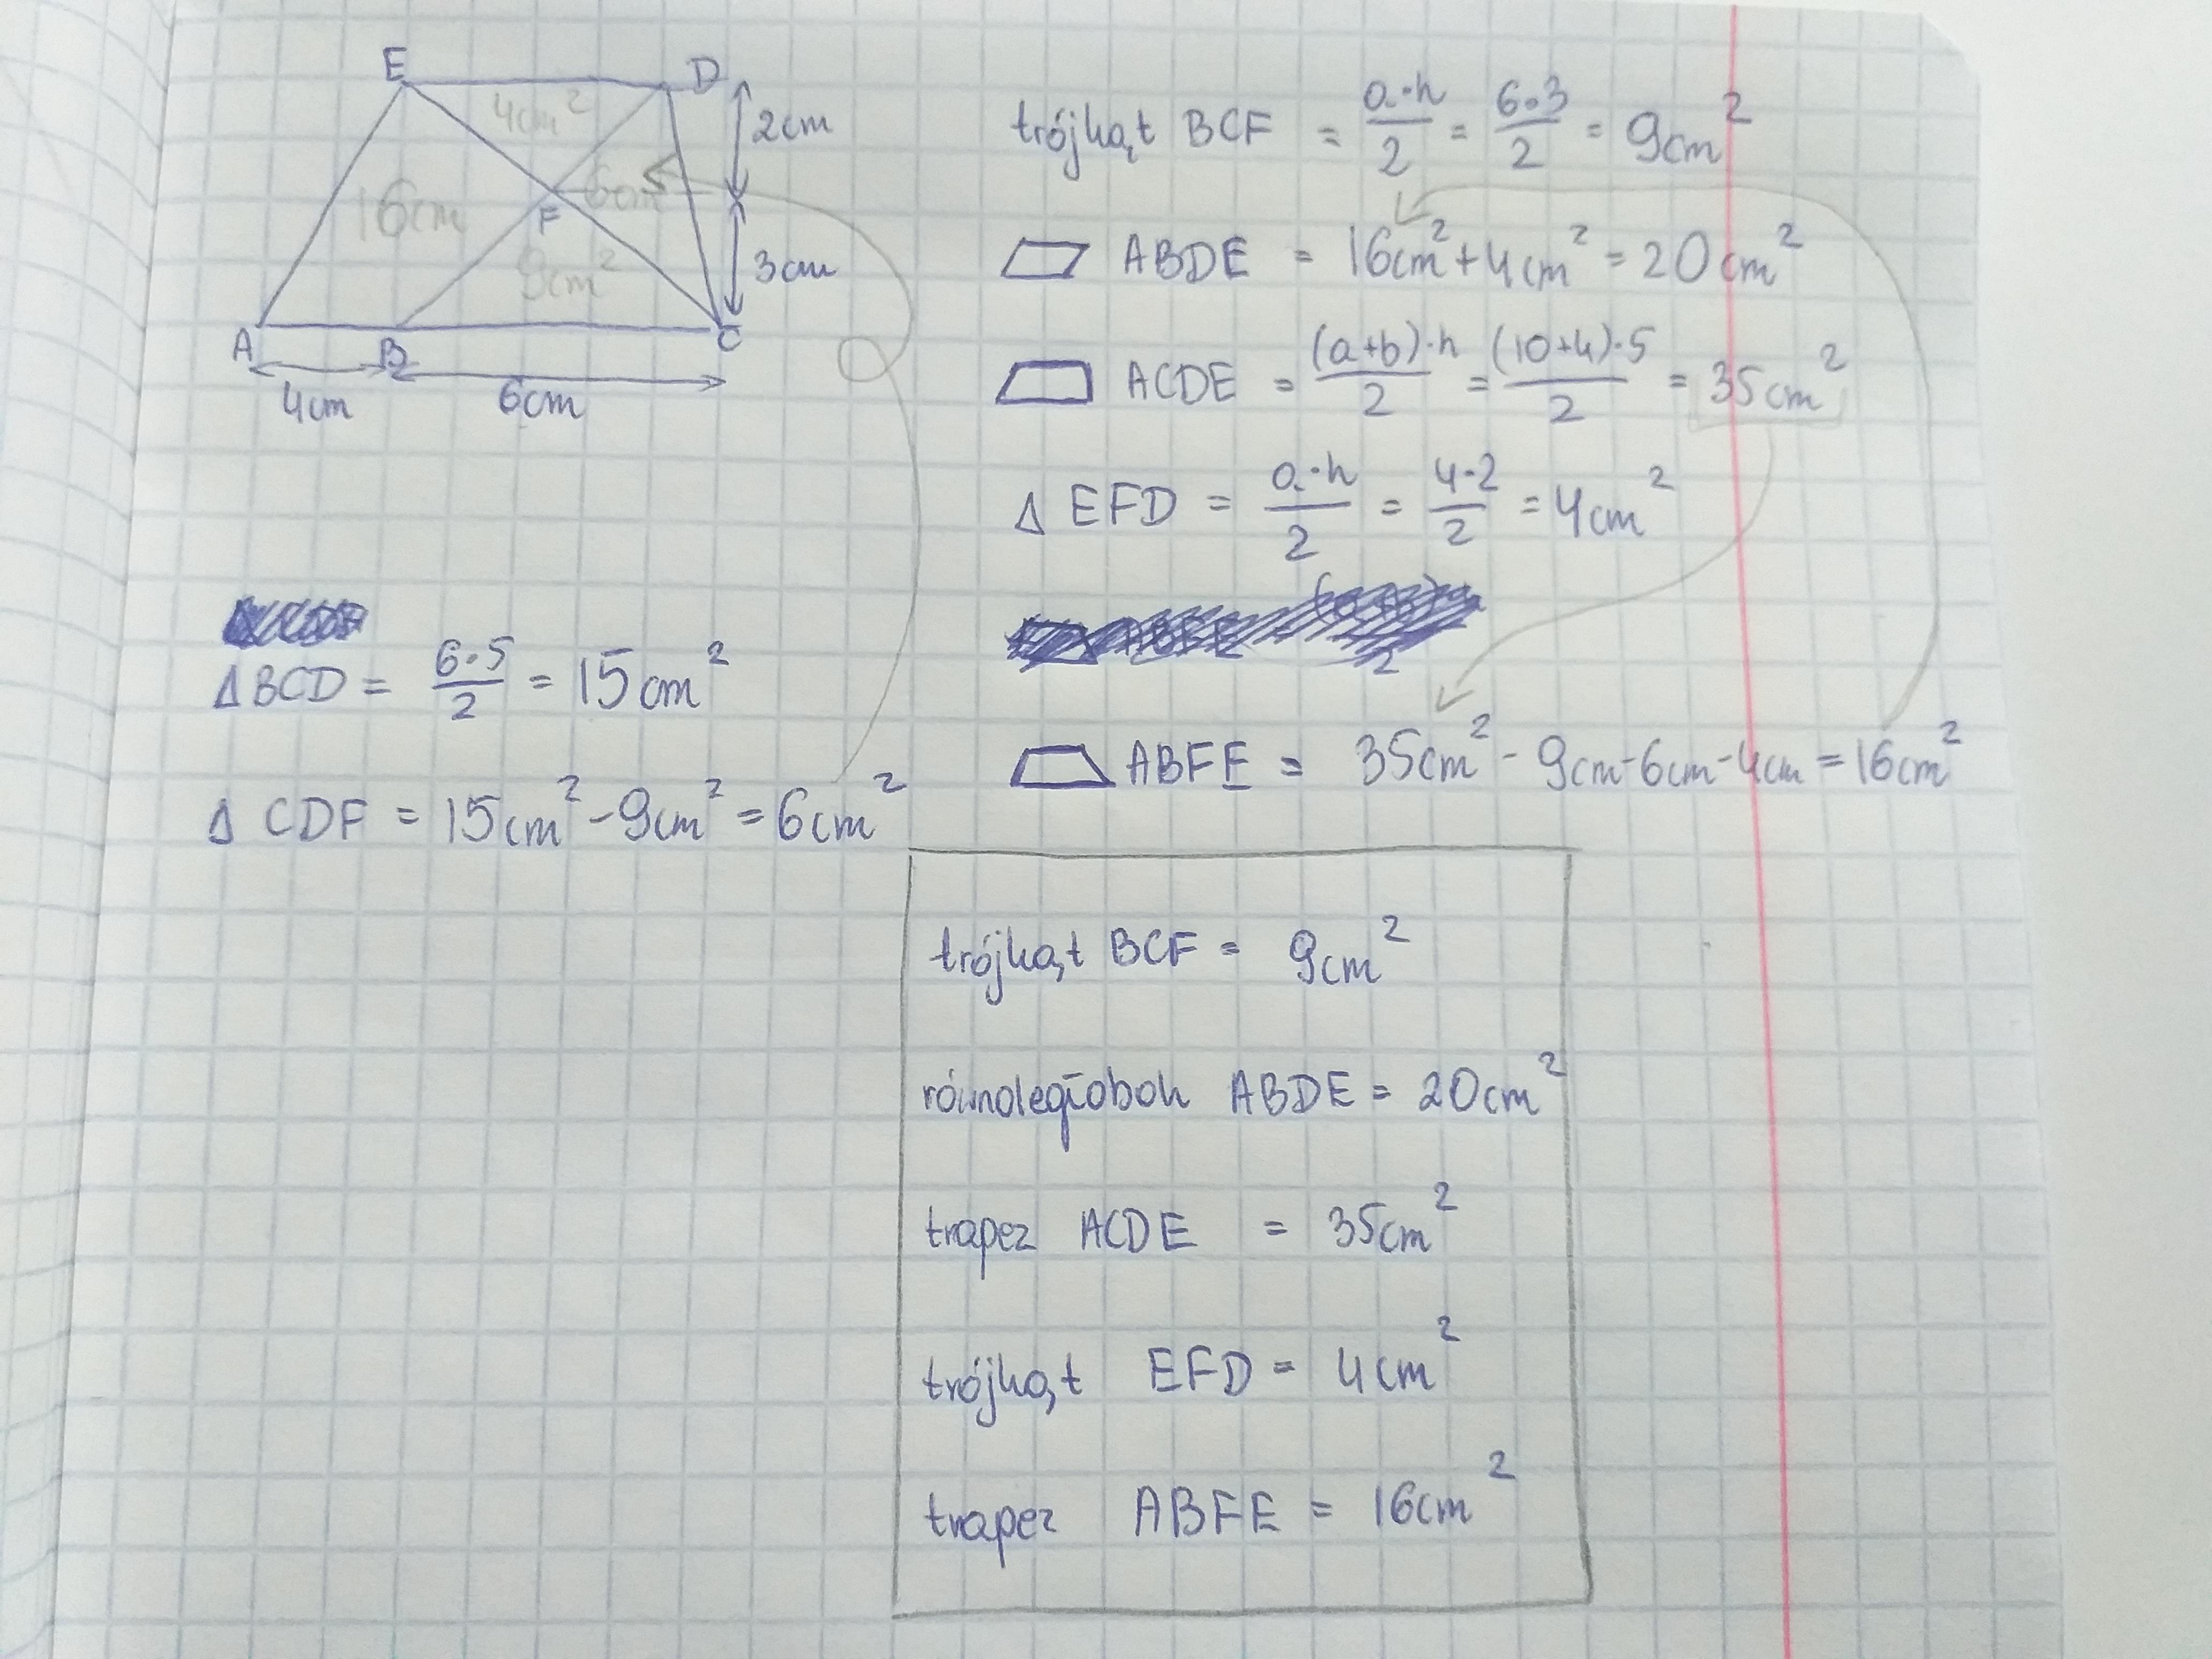 E D
4cm² 2cm
16cm F 6cm²
9cm² 3cm
A B C
4cm 6cm
trójkąt BCF = a·h/2 = 6·3/2 = 9cm²
ABDE = 16cm² + 4cm² = 20cm²
ACDE = (a+b)·h/2 = (10+4)·5/2 = 35cm²
Δ EFD = a·h/2 = 4·2/2 = 4cm²
ABFE = 35cm² - 9cm - 6cm - 4cm = 16cm²
Δ BCD = 6·5/2 = 15cm²
Δ CDF = 15cm² - 9cm² = 6cm²
trójkąt BCF = 9cm²
równoległobok ABDE = 20cm²
trapez ACDE = 35cm²
trójkąt EFD = 4cm²
trapez ABFE = 16cm²